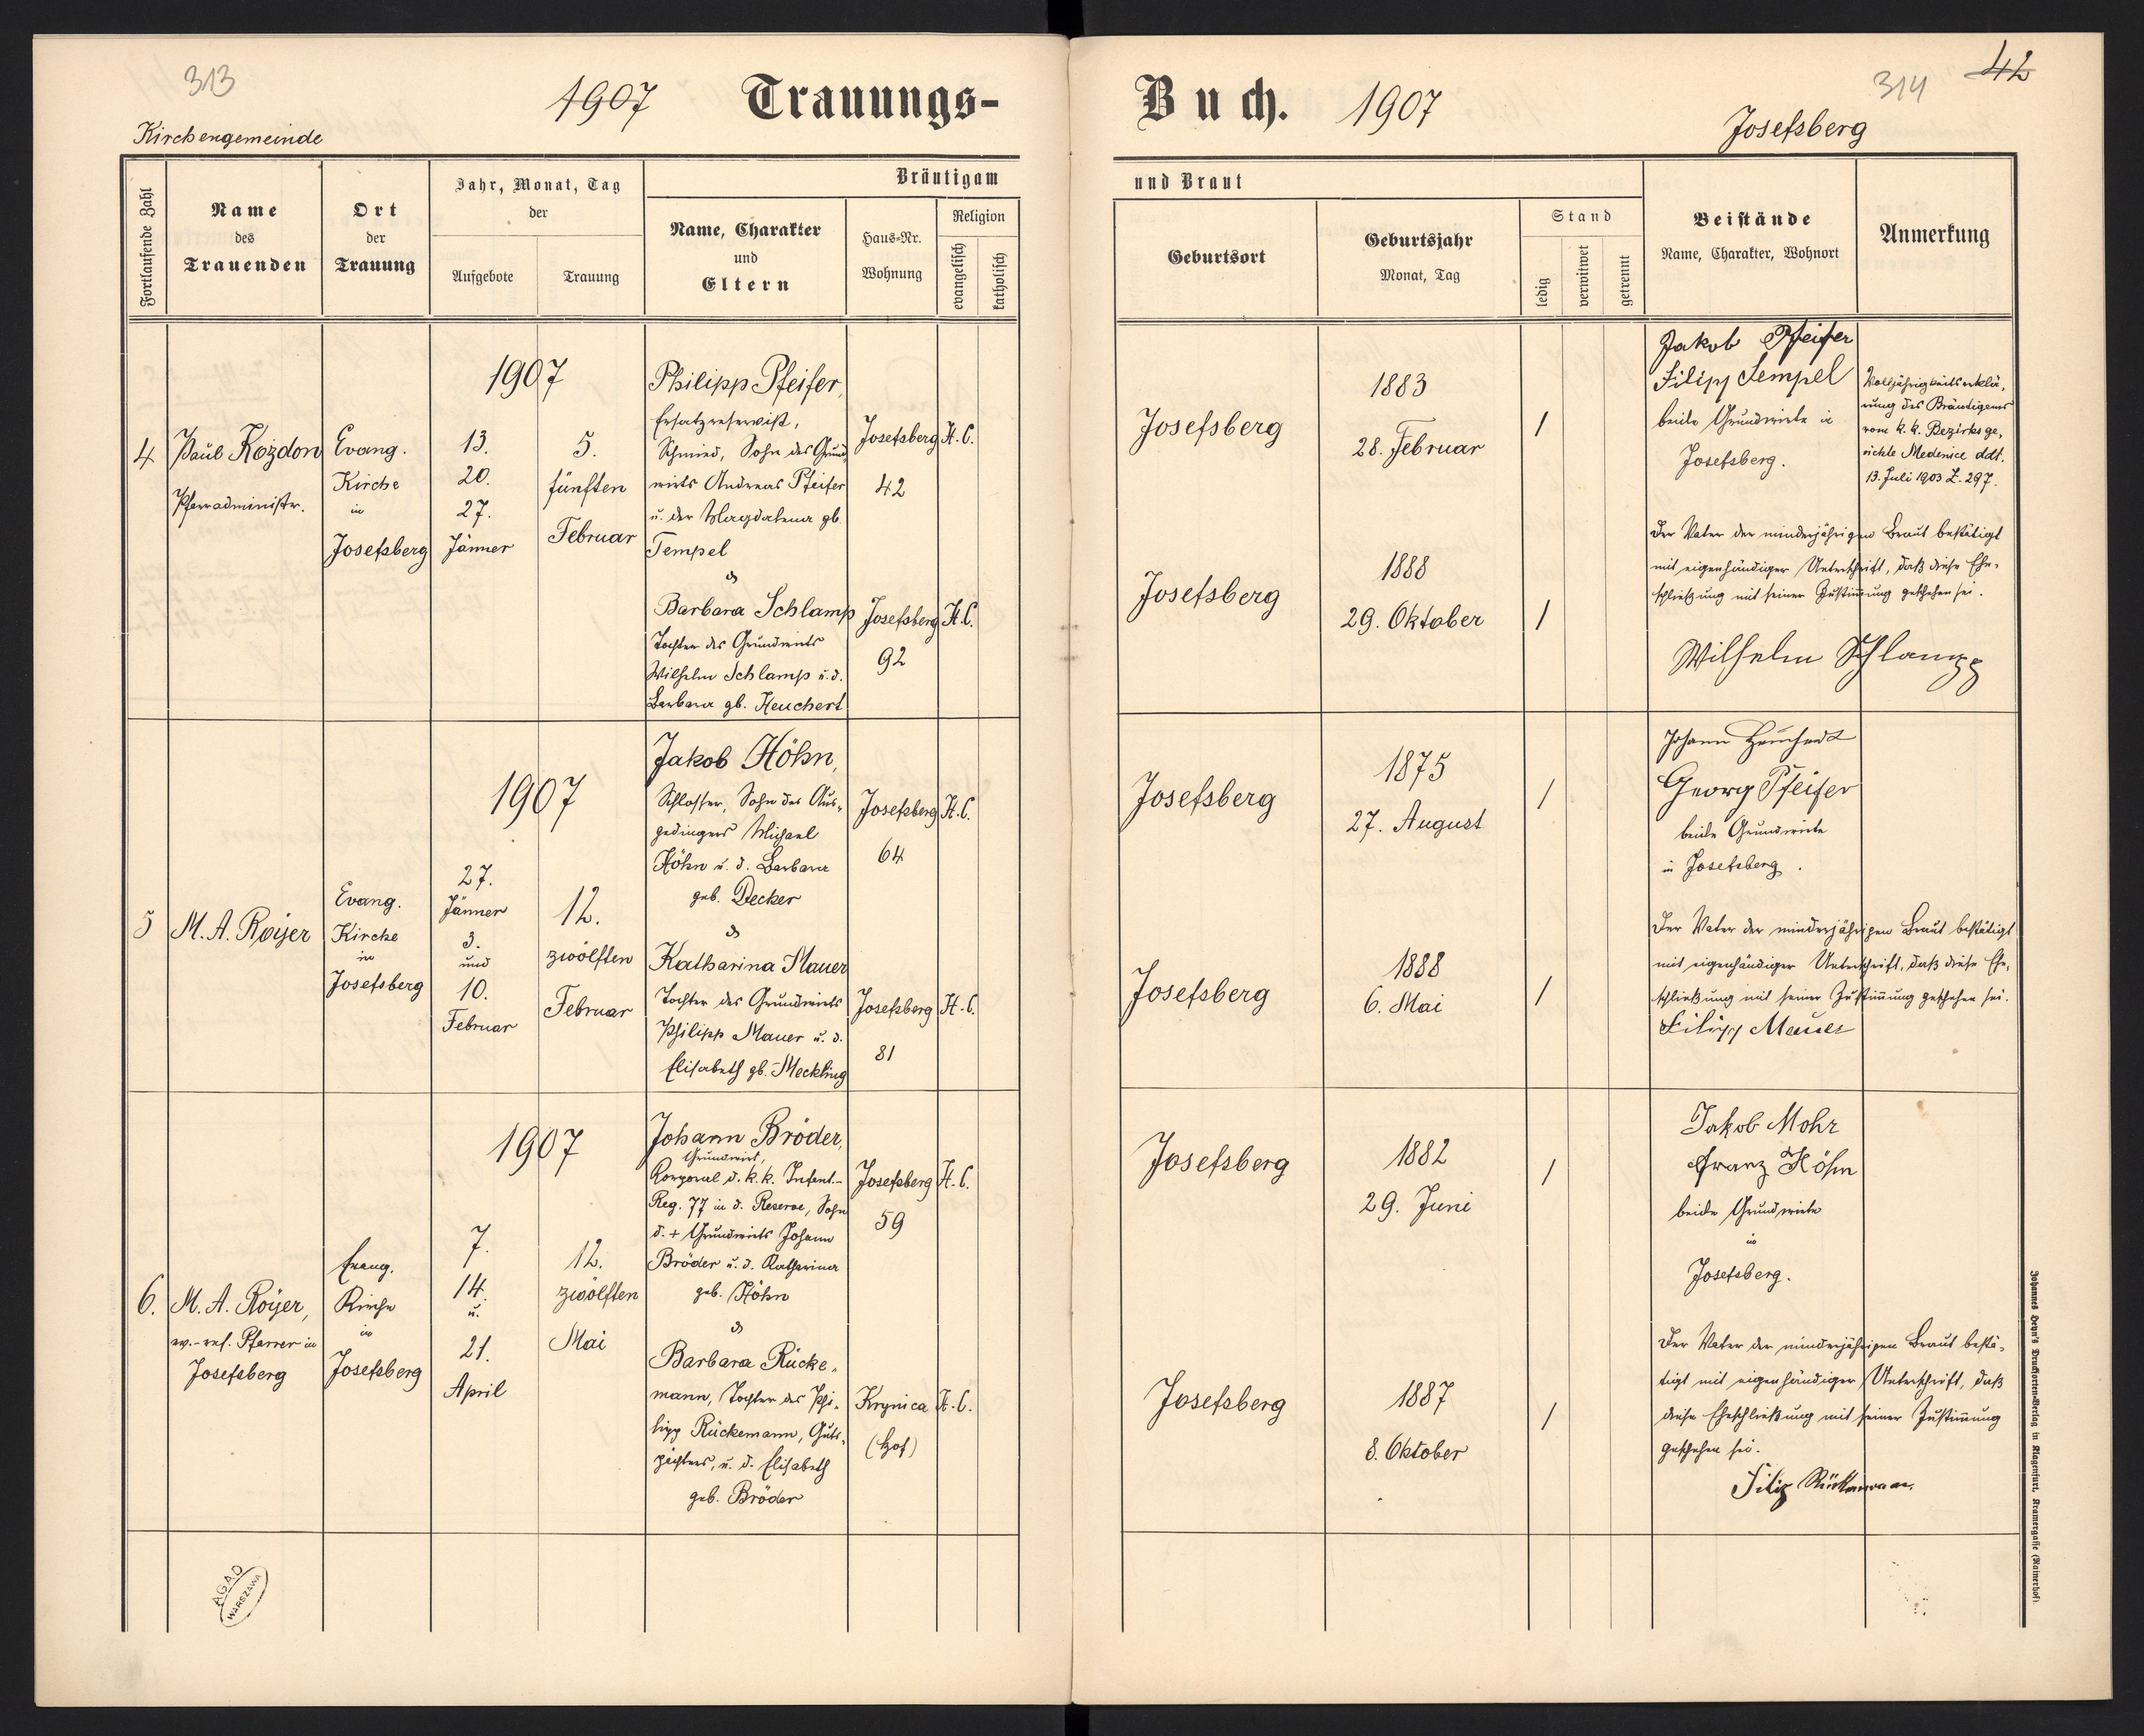 313
1907 Trauungs-
Kirchengemeinde
Fortlaufende Zahl
Name
des
Trauenden
Ort
der
Trauung
Jahr, Monat, Tag
der
Aufgebote
Trauung
Bräutigam
Name, Charakter
und
Eltern
Haus-Nr.
Wohnung
Religion
evangelisch
katholisch
4
Paul Kożdon
Pfarradministr.
Evang.
Kirche
in
Josefsberg
1907
13.
20.
27.
Jänner
5.
fünften
Februar
Philipp Pfeifer,
Ersatzreservist,
Schmied, Sohn des Grund-
wirts Andreas Pfeifer
u. der Magdalena gb.
Tempel
&
Josefsberg
42
H. C.
Barbara Schlamp
Tochter des Grundwirts
Wilhelm Schlamp u. d.
Barbara gb. Heuchert
Josefsberg
92
H. C.
5
M. A. Royer
Evang.
Kirche
in
Josefsberg
1907
27.
Jänner
3.
und
10.
Februar
12.
zwölften
Februar
Jakob Höhn,
Schlosser, Sohn des Aus-
gedingers Michael
Höhn u. d. Barbara
geb. Decker
&
Josefsberg
64
H. C.
Katharina Mauer
Tochter des Grundwirts
Philipp Mauer u. d.
Elisabeth gb. Meckling
Josefsberg
81
H. C.
6.
M. A. Royer,
ev.-ref. Pfarrer in
Josefsberg
Evang.
Kirche
in
Josefsberg
1907
7.
14.
u.
21.
April
12.
zwölften
Mai
Johann Bröder,
Grundwirt,
Korporal d. k. k. Infant.-
Reg. 77 in d. Reserve, Sohn
d. + Grundwirts Johann
Bröder u. d. Katharina
geb. Höhn
&
Josefsberg
59
H. C.
Barbara Rücke-
mann, Tochter des Phi-
lipp Rückemann, Guts-
pächters, u. d. Elisabeth
geb. Bröder
Krynica
(Hof)
H. C.
AGAD
WARSZAWA
Buch. 1907
314
42
Josefsberg
und Braut
Geburtsort
Geburtsjahr
Monat, Tag
Stand
ledig
verwitwet
getrennt
Beistände
Name, Charakter, Wohnort
Anmerkung
Josefsberg
1883
28. Februar
/
Jakob Pfeifer
Filipp Tempel
beide Grundwirte in
Josefsberg.
Volljährigkeitserklä-
rung des Bräutigams
vom k. k. Bezirksge-
richte Medenice ddt.
13. Juli 1903 Z. 297.
Josefsberg
1888
29. Oktober
/
Der Vater der minderjährigen Braut bestätigt
mit eigenhändiger Unterschrift, daß diese Ehe-
schließung mit seiner Zustimmung geschehen sei.
Wilhelm Schlamp
Josefsberg
1875
27. August
/
Johann Heuchert
Georg Pfeifer
beide Grundwirte
in Josefsberg.
Josefsberg
1888
6. Mai
/
Der Vater der minderjährigen Braut bestätigt
mit eigenhändiger Unterschrift, daß diese Ehe-
schließung mit seiner Zustimmung geschehen sei.
Filipp Mauer
Josefsberg
1882
29. Juni
/
Jakob Mohr
Franz Höhn
beide Grundwirte
in
Josefsberg.
Josefsberg
1887
8. Oktober
/
Der Vater der minderjährigen Braut bestä-
tigt mit eigenhändiger Unterschrift, daß
diese Eheschließung mit seiner Zustimmung
geschehen sei.
Filip Rückemann
Johannes Heyn's Drucksorten-Verlag in Klagenfurt, Kramergasse (Rainerhof)